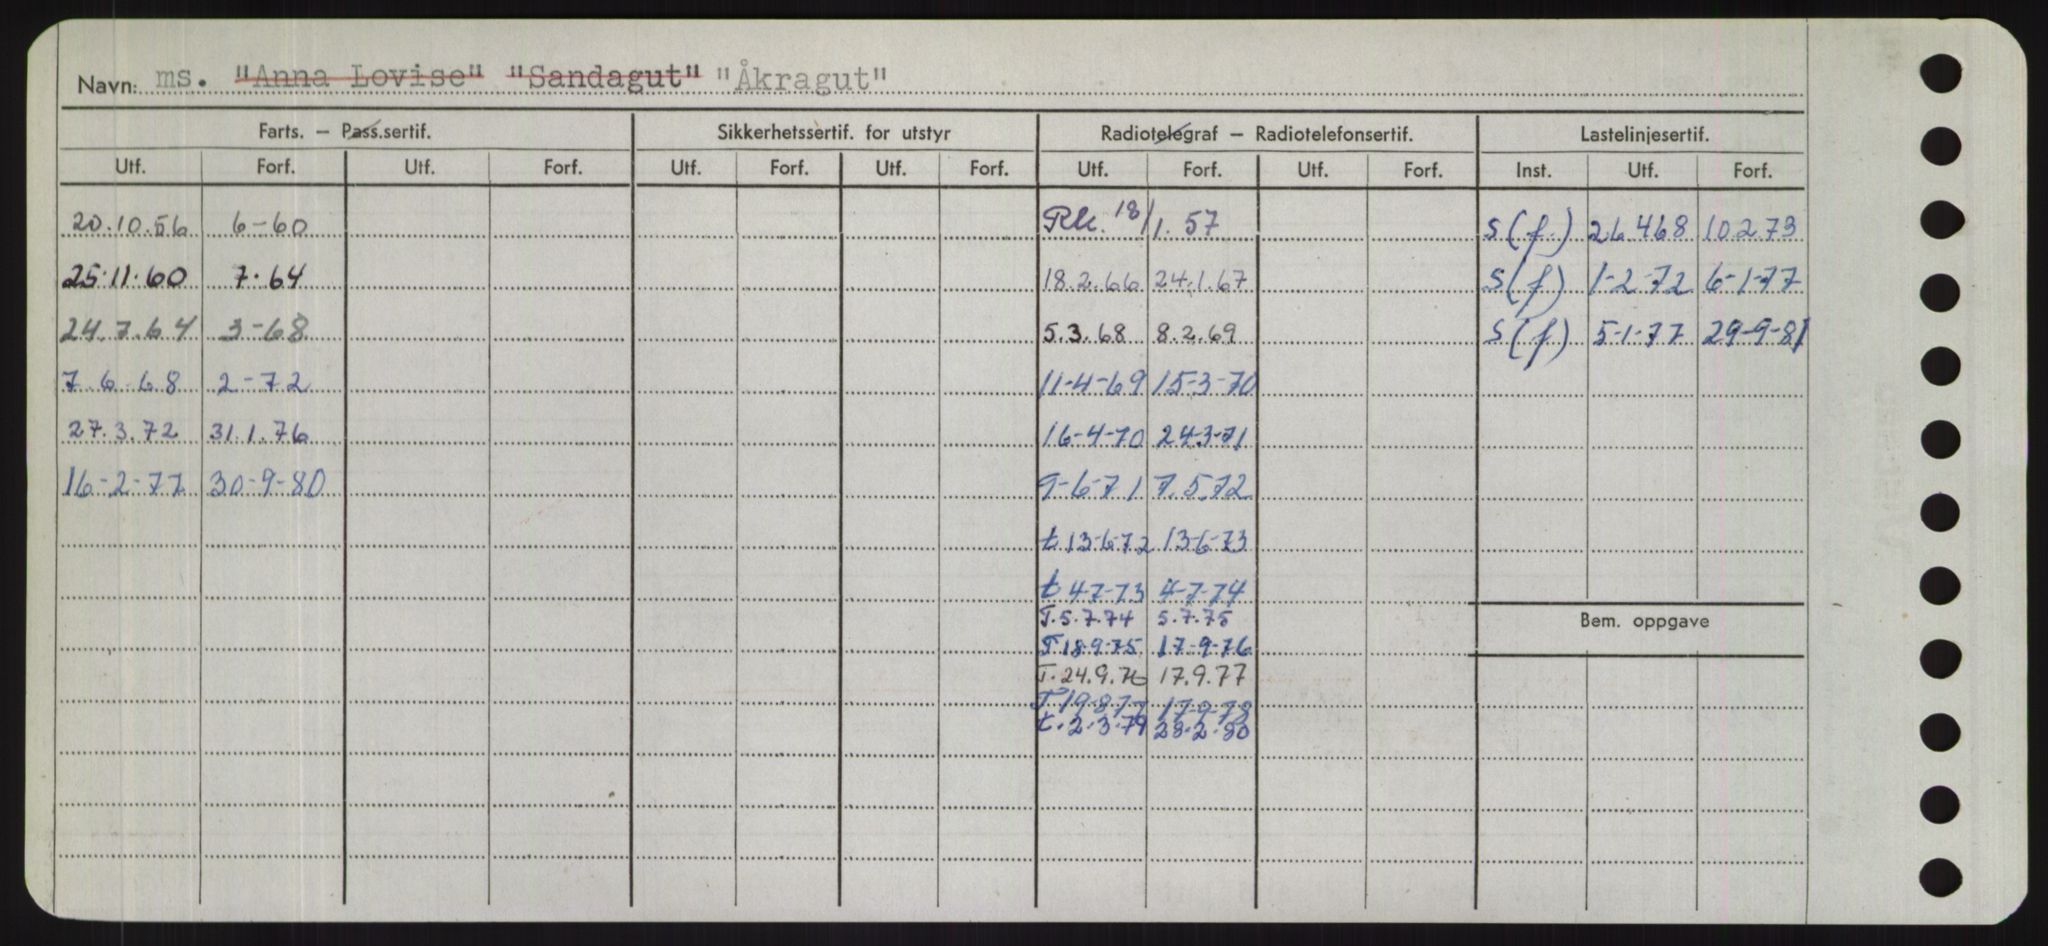 Navn: ms. "Anna Lovise" "Sandagut" "Åkragut"
Farts. – Pass.sertif. Sikkerhetssertif. for utstyr Radiotelegraf – Radiotelefonsertif. Lastelinjesertif.
Utf. Forf. Utf. Forf. Utf. Forf. Utf. Forf. Utf. Forf. Utf. Forf. Inst. Utf. Forf.
20.10.56 6-60 Rk. 18/1. 57 S(f.) 26.468 10.2.73
25.11.60 7.64 18.2.66 24.1.67 S(f) 1-2-72 6-1-77
24.7.64 3-68 5.3.68 8.2.69 S(f) 5-1-77 29-9-81
7.6.68 2-72 11-4-69 15-3-70
27.3.72 31.1.76 16-4-70 24-3-71
16-2-77 30-9-80 9-6-71 7.5.72
t 13-6-72 13-6-73
t 4-7-73 4-7-74
T.5.7.74 5.7.75
Bem. oppgave
T 18-9-75 17-9-76
T. 24.9.76 17.9.77
T 19-8-77 17-9-78
t. 2-3-79 28-2-80